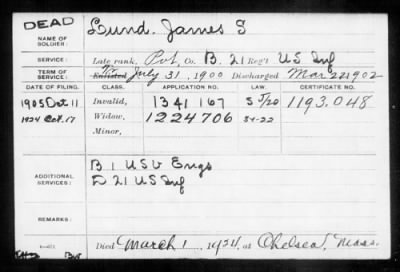 DEAD
NAME OF SOLDIER: Lund. James S
SERVICE: Late rank, Pvt, Co. B. 21 Reg't US Inf
TERM OF SERVICE: Enlisted July 31, 1900 Discharged Mar 22 1902
DATE OF FILING. CLASS. APPLICATION NO. LAW. CERTIFICATE NO.
1905 Oct 11 Invalid, 1341167 1193.048
1924 Oct. 17 Widow, 1224706
Minor,
ADDITIONAL SERVICES: B 1 USV Engs
D 21 US Inf
REMARKS:
Died March 1, 1924, at Chelsea, Mass.